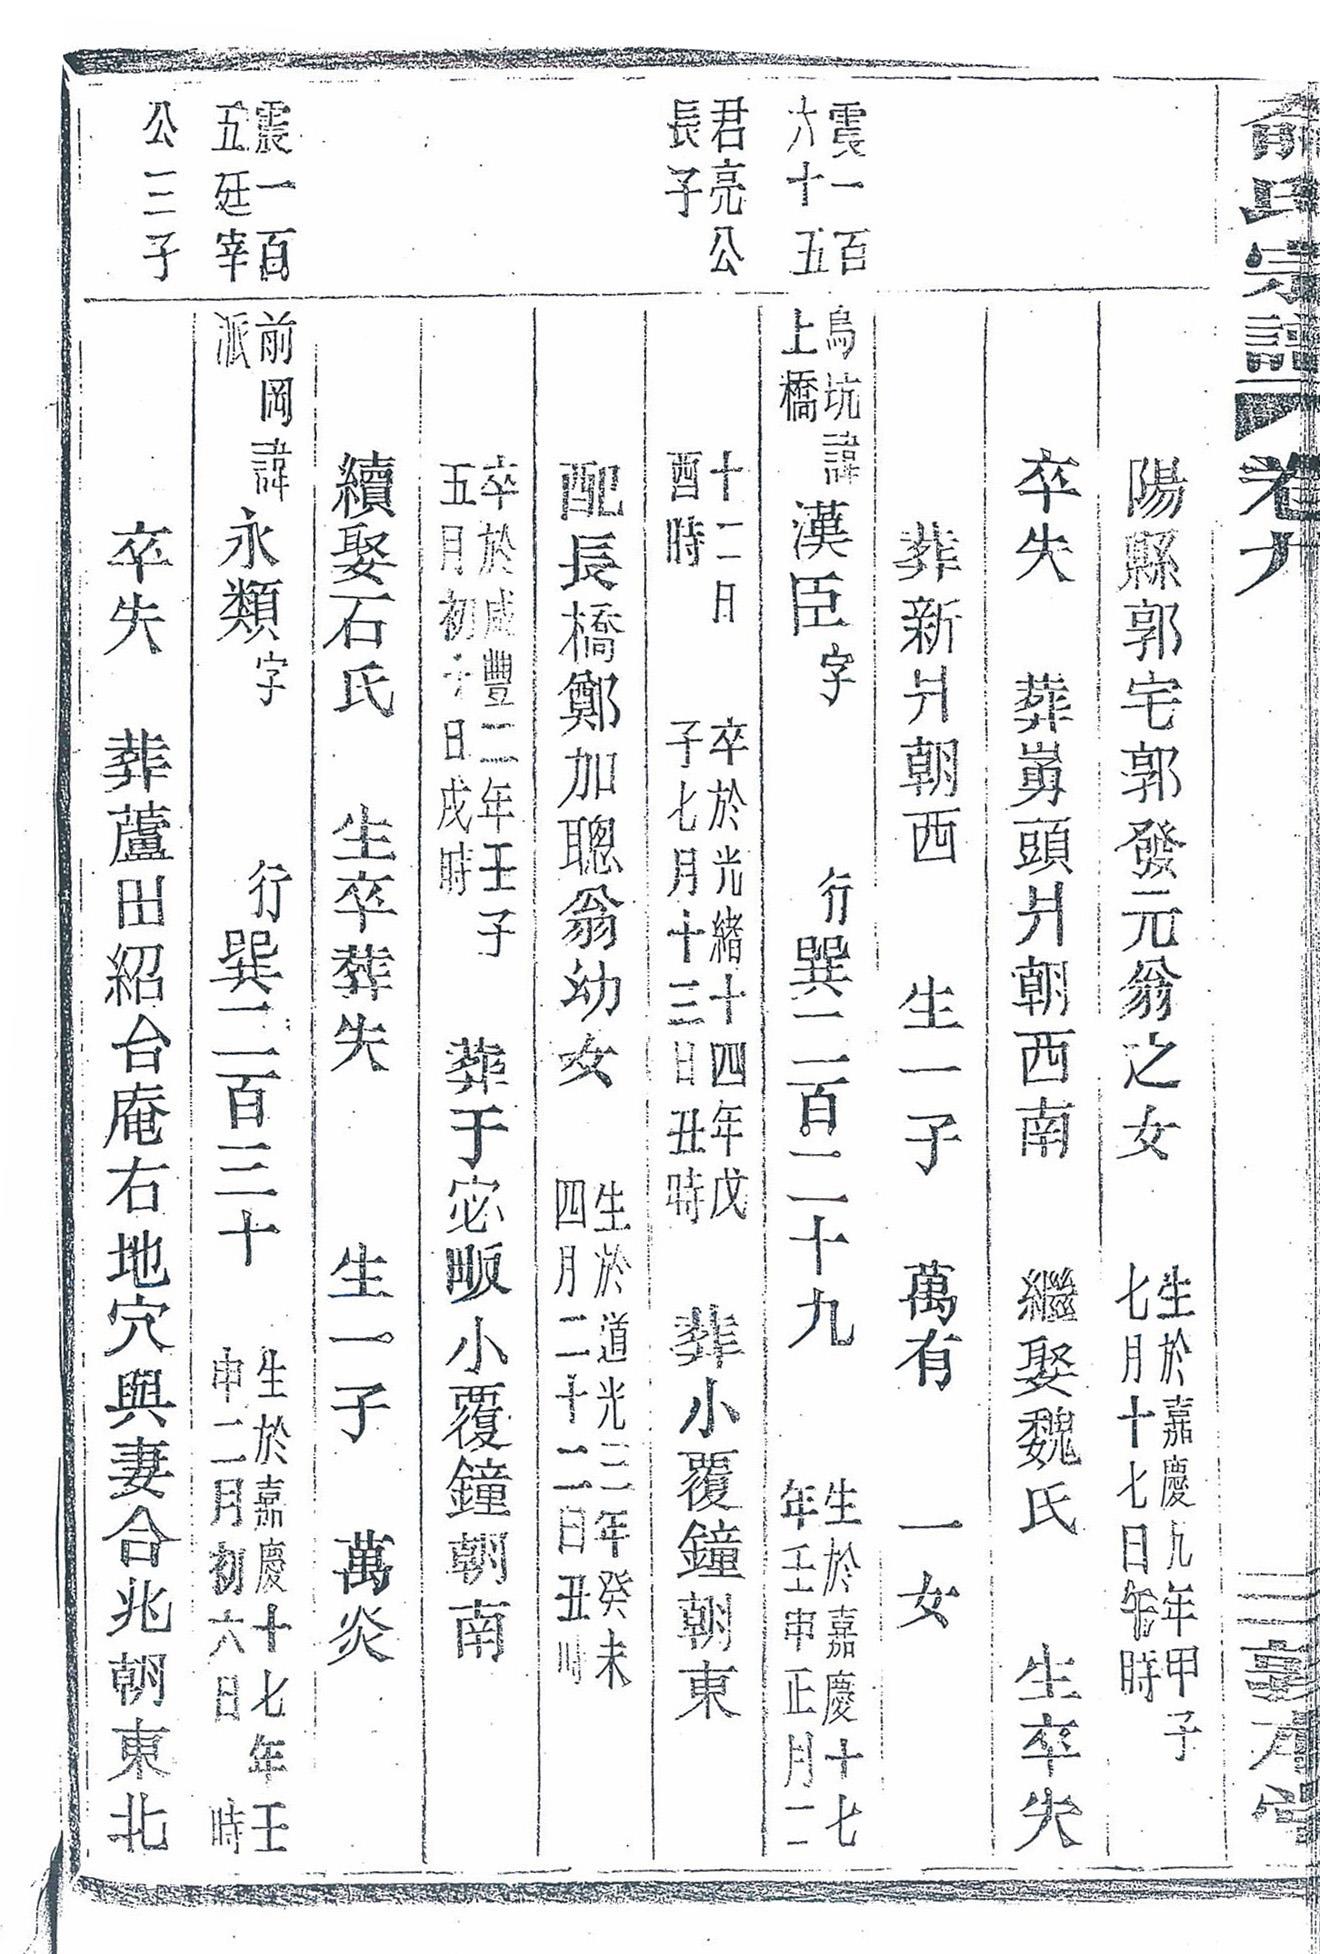 俞氏宗譜 卷九 三 敦本堂
陽縣郭宅郭發元翁之女 生於嘉慶九年甲子
七月十七日午時
卒失 葬嵜頭爿朝西南 繼娶魏氏 生卒失
葬新爿朝西 生一子 萬有 一女
震一百
六十五
君亮公
長子
烏坑
上橋
諱漢臣 字 行巽二百二十九 生於嘉慶十七
年壬申正月二
十二日
酉時
卒於光緒十四年戊
子七月十三日丑時
葬小覆鐘朝東
配長橋鄭加聰翁幼女 生於道光三年癸未
四月二十二日丑時
卒於咸豐二年壬子
五月初十日戌時
葬于宓畈小覆鐘朝南
續娶石氏 生卒葬失 生一子 萬炎
震一百
五廷宰
公三子
前岡
派
諱永類 字 行巽二百三十 生於嘉慶十七年壬
申二月初六日 時
卒失 葬蘆田紹台庵右地穴與妻合兆朝東北